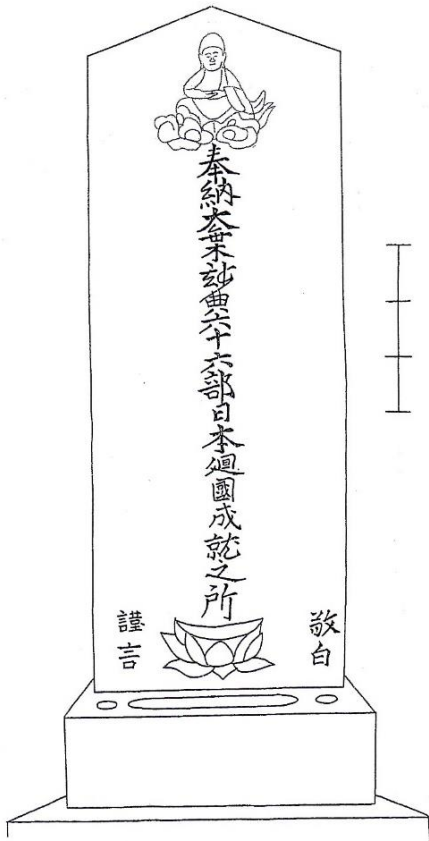 奉納大乗玅典六十六部日本廻國成就之所
敬白
謹言